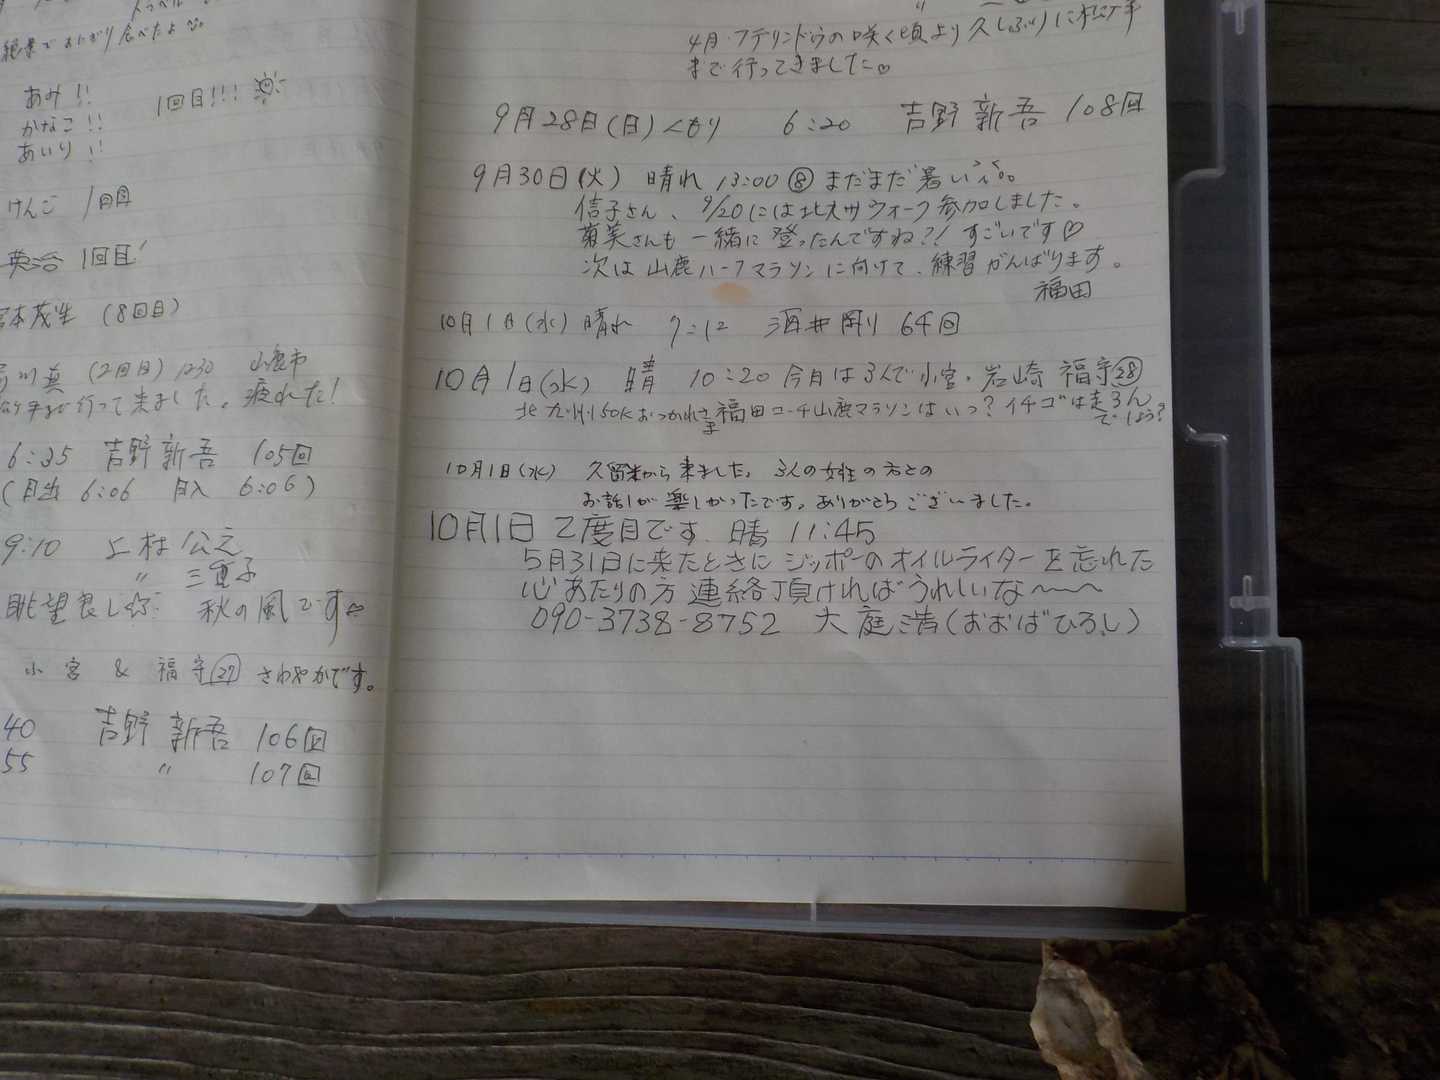 絶景でおにぎり食べたよ
あみ!!
かなこ!!
あいり!!
1回目!!!
けんご 1回目
1回目!
宮本茂生 (8回目)
(2回目) 1230 山鹿市
行って来ました。疲れた!
6:35 吉野新吾 105回
(月出 6:06 月入 6:06)
9:10 上村 公之
〃 三重子
眺望良し 秋の風です
小宮 & 福守㉗ さわやかです。
40 吉野 新吾 106回
55 〃 107回
〃
4月・フデリンドウの咲く頃より久しぶりに
まで行ってきました♡
9月28日(日)くもり 6:20 吉野 新吾 108回
9月30日(火) 晴れ 13:00 ⑧ まだまだ暑い
信子さん、9/20には北九州ウォーク参加しました。
菊美さんも一緒に登ったんですね?! すごいです♡
次は山鹿ハーフマラソンに向けて、練習がんばります。
福田
10月1日(水) 晴れ 7:12 酒井剛 64回
10月1日(水) 晴 10:20 今月は3人で小宮・岩崎 福守㉘
北九州50Kおつかれさま 福田コーチ山鹿マラソンはいつ? イチゴは走るんでしょう?
10月1日(水) 久留米から来ました。3人の女性の方との
お話しが楽しかったです。ありがとうございました。
10月1日 2度目です 晴 11:45
5月31日に来たときに ジッポーのオイルライターを忘れた
心あたりの方 連絡頂ければうれしいな〜〜
090-3738-8752 大庭 浩(おおばひろし)